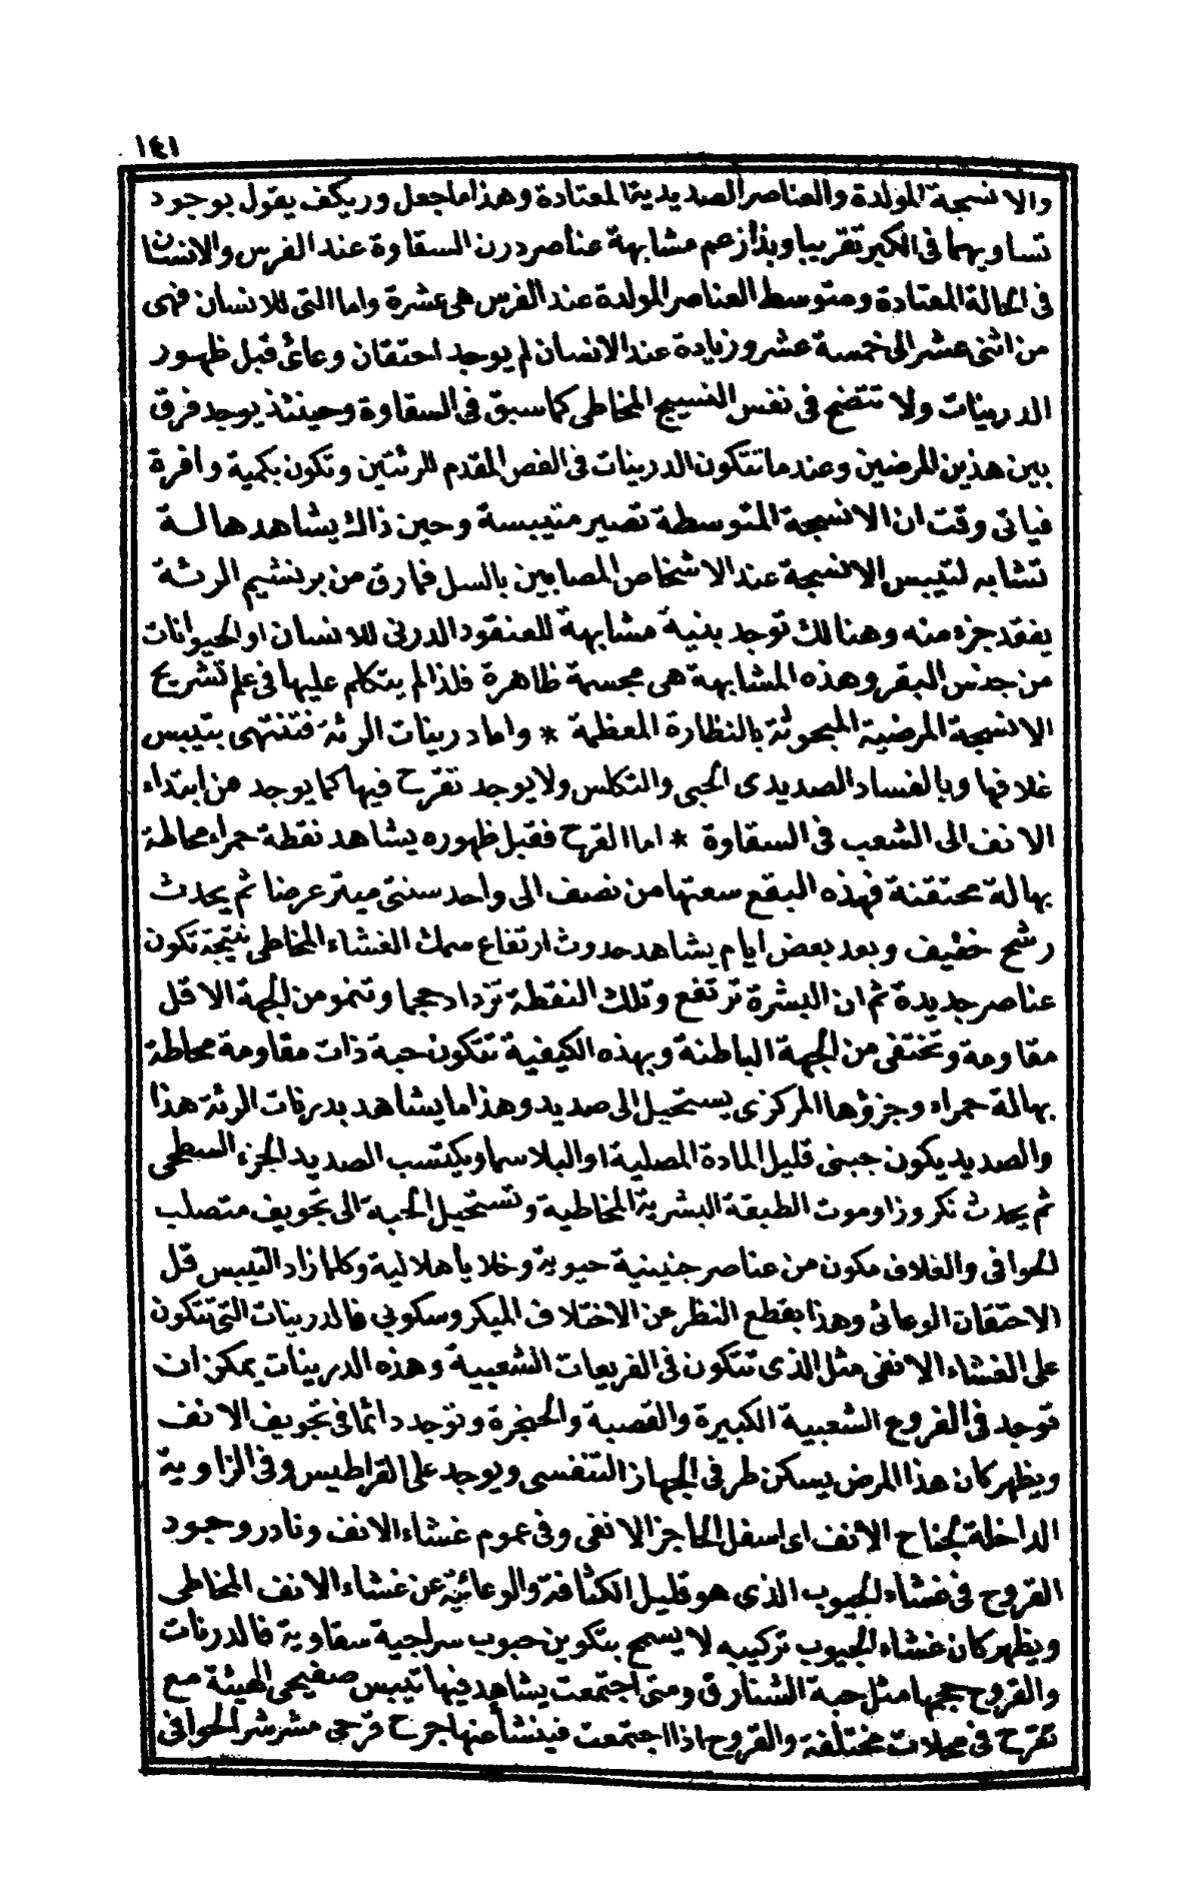 ١٤١
والانسجة المولدة والعناصر الصديدية المعتادة وهذا ما جعل وريكف يقول بوجود
تساويهما فى الكبر تقريبا وبذا زعم مشابهة عناصر درن السقاوة عند الفرس والانسان
فى الحالة المعتادة ومتوسط العناصر المولدة عند الفرس هى عشرة واما التى للانسان فهى
من اثنى عشر الى خمسة عشر وزيادة عند الانسان لم يوجد احتقان وعائى قبل ظهور
الدرينات ولا تتضح فى نفس النسيج المخاطى كما سبق فى السقاوة وحينئذ يوجد فرق
بين هذين المرضين وعندما تتكون الدرينات فى الفص المقدم للرئتين وتكون بكمية وافرة
فياتى وقت ان الانسجة المتوسطة تصير متيبسة وحين ذاك يشاهد هالة
تشابه لتيبس الانسجة عند الاشخاص المصابين بالسل فما رق من برنشيم الرئة
يفقد جزء منه وهنالك توجد بنية مشابهة للعنقود الدرنى للانسان او الحيوانات
من جنس البقر وهذه المشابهة هى مجسمة ظاهرة فلذا لم يتكلم عليها فى علم تشريح
الانسجة المرضية المبحوثة بالنظارة المعظمة * واما درينات الرئة فتنتهى بتيبس
غلافها وبالفساد الصديدى الجبى والتكلس ولا يوجد تقرح فيها كما يوجد من ابتداء
الانف الى الشعب فى السقاوة * اما القرح فقبل ظهوره يشاهد نقطة حمراء محاطة
بهالة محتقنة فهذه البقع سعتها من نصف الى واحد سنتى ميتر عرضا ثم يحدث
رشح خفيف وبعد بعض ايام يشاهد حدوث ارتفاع سمك الغشاء المخاطى نتيجة تكون
عناصر جديدة ثم ان البشرة ترتفع وتلك النقطة تزداد حجما وتنمو من الجهة الاقل
مقاومة وتختفى من الجهة الباطنة وبهذه الكيفية تتكون حبة ذات مقاومة محاطة
بهالة حمراء وجزؤها المركزى يستحيل الى صديد وهذا ما يشاهد بدرنات الرئة هذا
والصديد يكون جبنى قليل المادة المصلية او البلاسما ويكتسب الصديد الجزء السطحى
ثم يحدث نكروز او موت الطبقة البشرية المخاطية وتستحيل الحبة الى تجويف متصلب
الحوافى والغلاف مكون من عناصر جنينية حيوية وخلايا هلالية وكلما زاد التيبس قل
الاحتقان الوعائى وهذا بقطع النظر عن الاختلاف الميكروسكوبى فالدرينات التى تتكون
على الغشاء الانفى مثل الذى تتكون فى الفريعات الشعبية وهذه الدرينات يمكن ان
توجد فى الفروع الشعبية الكبيرة والقصبة والحنجرة وتوجد دائما فى تجويف الانف
ويظهر كان هذا المرض يسكن طرفى الجهاز التنفسى ويوجد على القراطيس وفى الزاوية
الداخلة لجناح الانف اى اسفل الحاجز الانفى وفى عموم غشاء الانف ونادر وجود
القروح فى غشاء الجيوب الذى هو قليل الكثافة والوعائية عن غشاء الانف المخاطى
ويظهر كان غشاء الجيوب تركيبه لا يسمح بتكوين حبوب سراجية سقاوية فالدرنات
والقروح حجمها مثل حبة الشنارق ومتى اجتمعت يشاهد فيها تيبس صفيحى الهيئة مع
تقرح فى محلات مختلفة والقروح اذا اجتمعت فينشأ عنها جرح قرحى مشرشر الحوافى